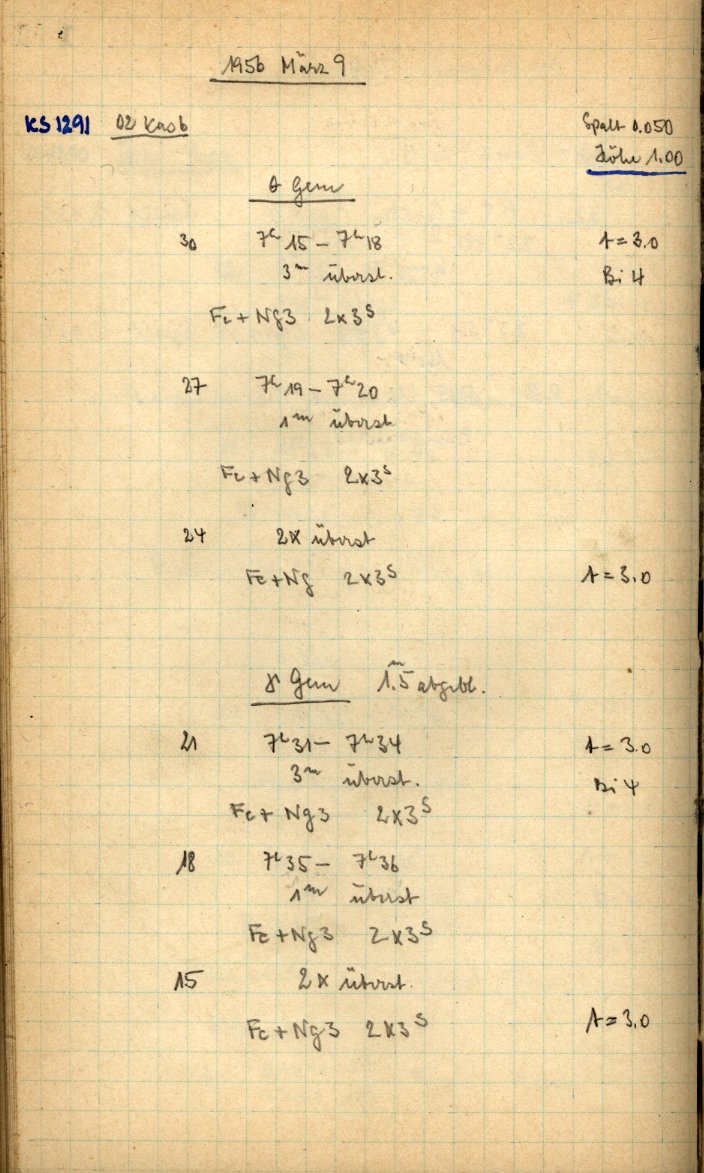 1956 März 9
KS 1291 02 Kasb Spalt 0.050
Höhe 1.00
θ Gem
30 7h 15 – 7h 18 A = 3.0
3m überst. Bi 4
Fe + Ng3 2x3s
27 7h 19 – 7h 20
1m überst.
Fe + Ng3 2x3s
24 2x überst
Fe + Ng 2x3s A = 3.0
γ Gem 1m.5 abgebl.
21 7h 31 – 7h 34 A = 3.0
3m überst. Bi 4
Fe + Ng3 2x3s
18 7h 35 – 7h 36
1m überst
Fe + Ng3 2x3s
15 2x überst.
Fe + Ng3 2x3s A = 3.0